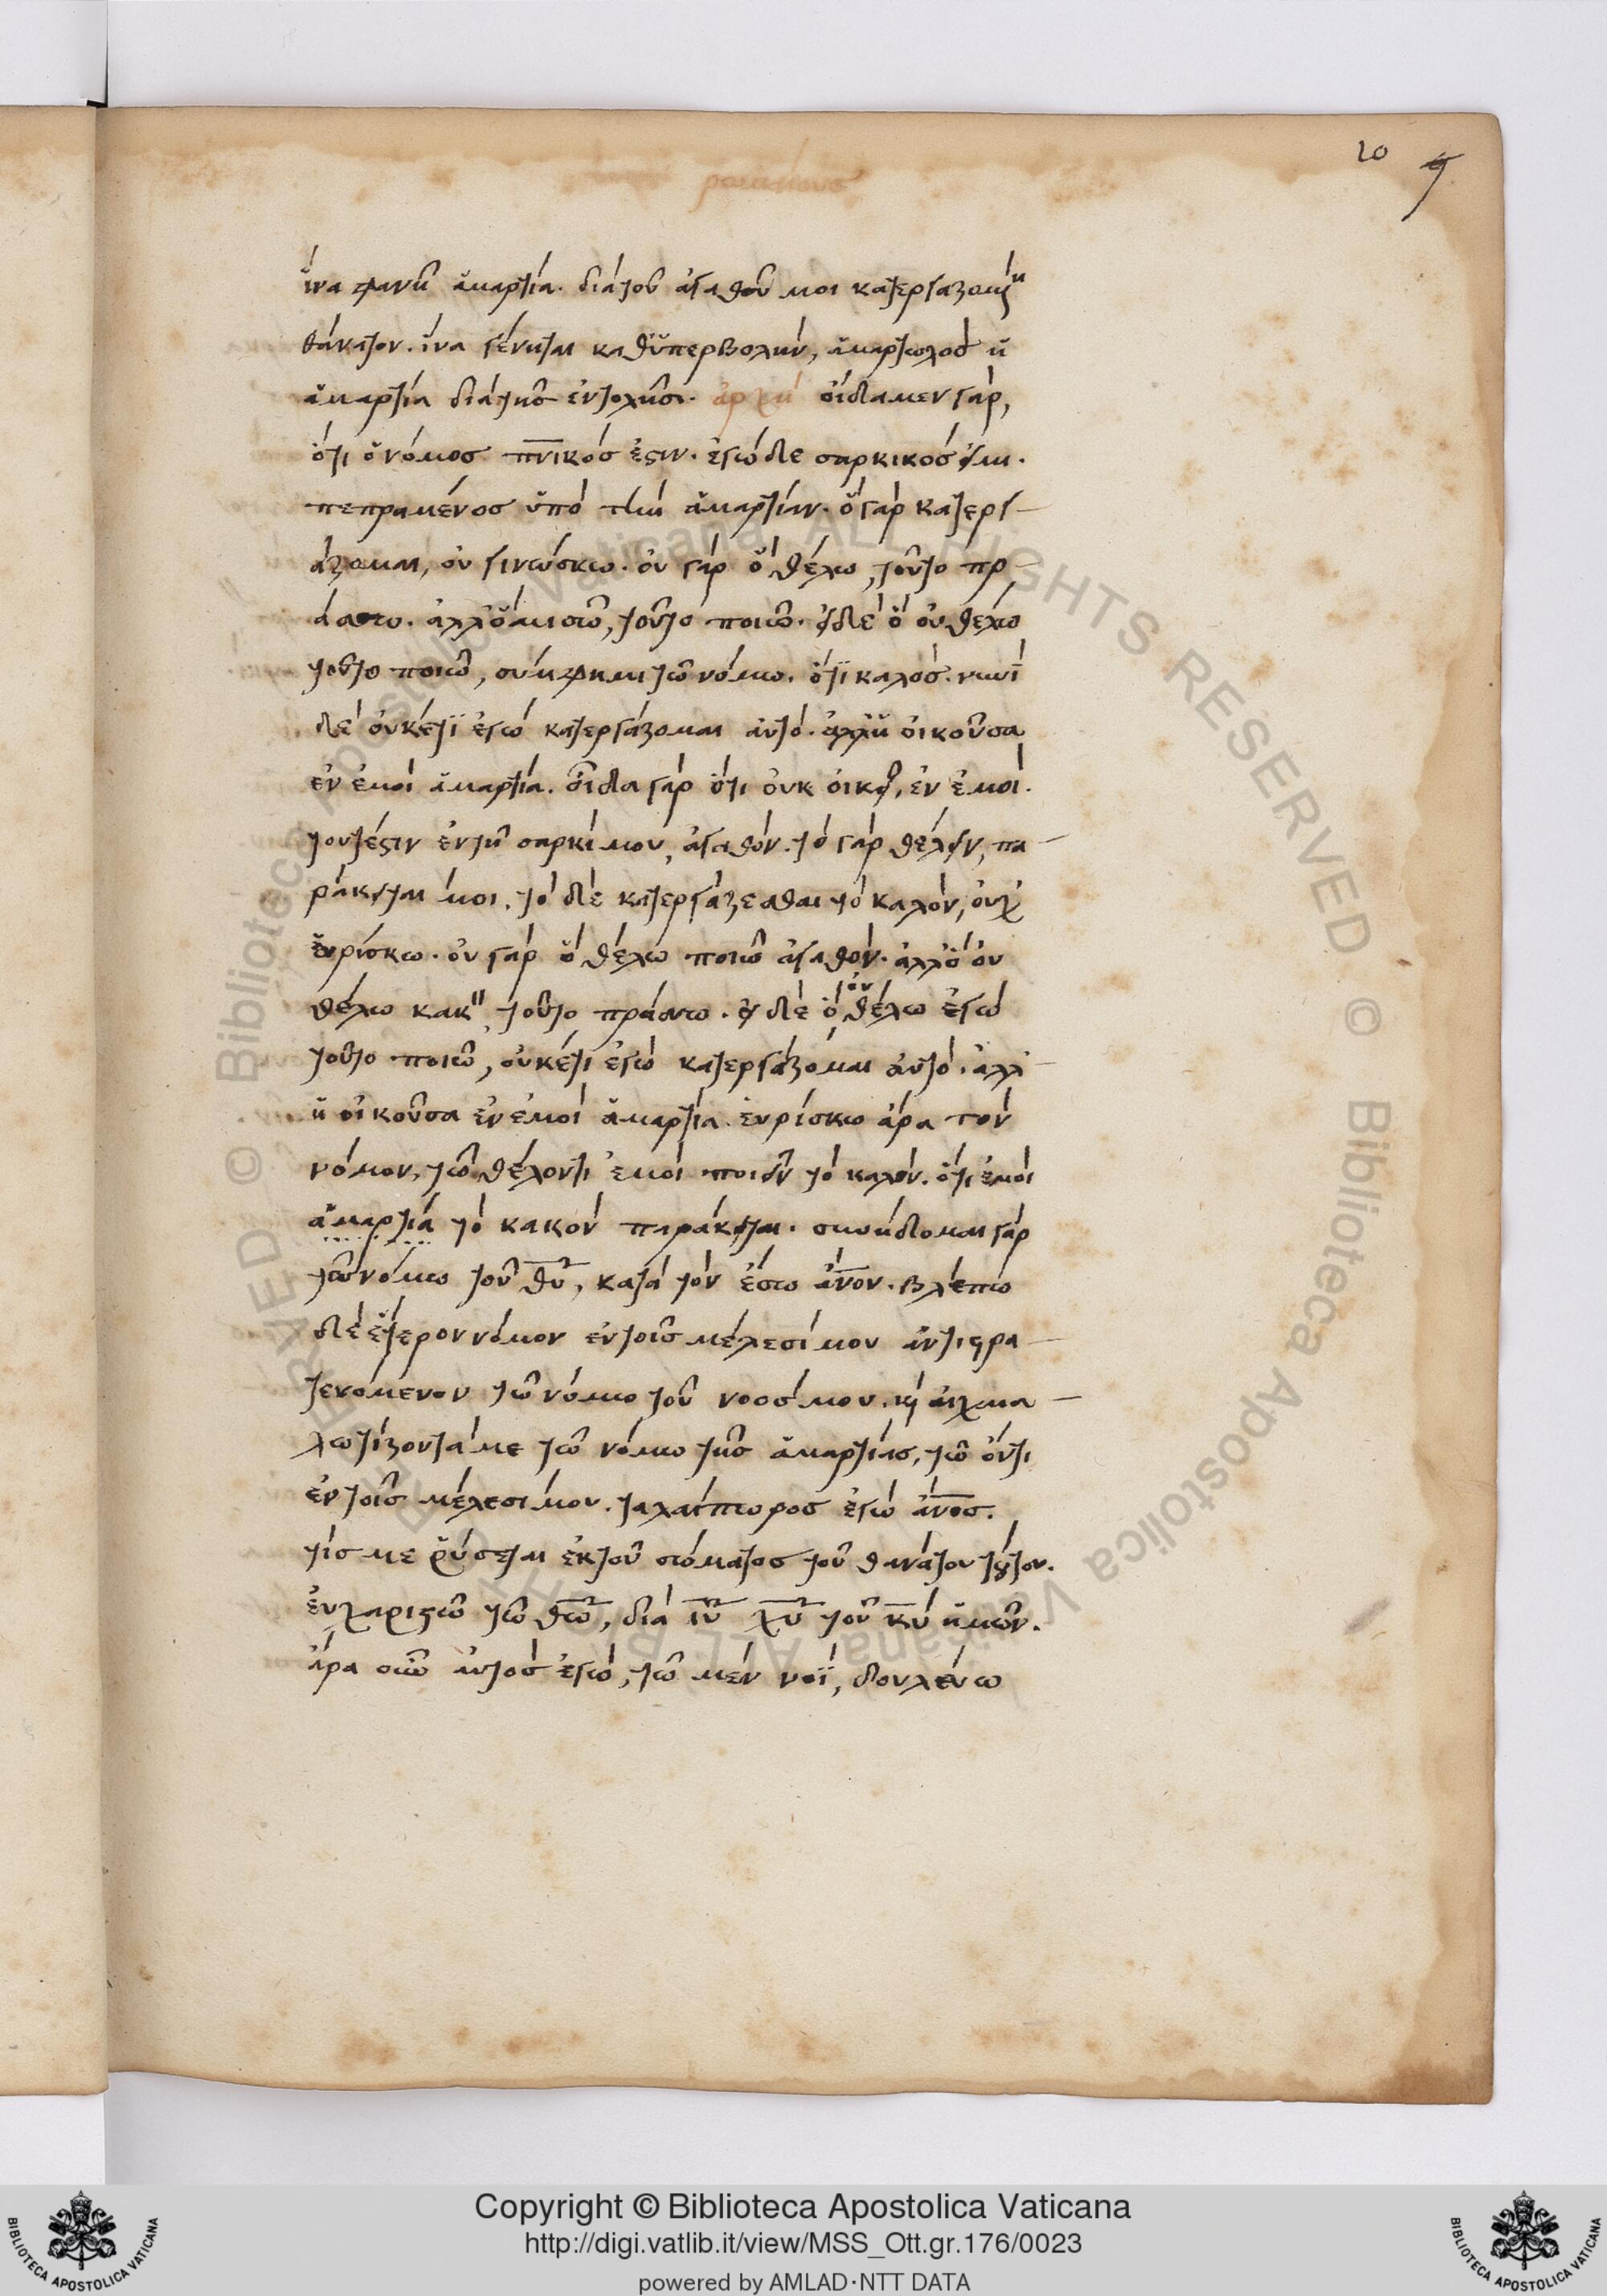 20 9
ἵνα φανῆ ἁμαρτία. διατοῦ ἀγαθοῦ μοι κατεργαζομένη
θάνατον. ἵνα γένηται καθ ὑπερβολὴν, ἁμαρτωλοσ ἡ
ἁμαρτία διατῆσ ἐντολῆσ. ἀρχὴ οἴδαμεν γὰρ,
ὅτι ὁ νόμοσ π̅ν̅ικόσ ἐστιν. ἐγὼ δε σαρκικόσ εἰμι.
πεπραμένοσ ὑπὸ τὴν ἁμαρτίαν. ὃ γὰρ κατεργ
άζομαι, οὐ γινώσκω. οὐ γὰρ ὃ θέλω, τοῦτο πρ
άσσω. ἀλλ ὃ μισῶ, τοῦτο ποιῶ. εἰ δὲ ὃ οὐ θέλω
τοῦτο ποιῶ, σύμφημι τῶ νόμω. ὅτϊ καλόσ. νυνῒ
δὲ οὐκέτϊ ἐγὼ κατεργάζομαι αὐτὸ. ἀλλ ἡ οἰκοῦσα
ἐν ἐμοὶ ἁμαρτία. οἶδα γὰρ ὅτι οὐκ οἰκεῖ, ἐν ἐμοὶ.
τουτέστιν ἐν τῆ σαρκίμου, ἀγαθόν. τὸ γὰρ θέλειν, πα
ράκειται μοι. τὸ δὲ κατεργάζεσθαι τὸ καλὸν, οὐχ
εὑρίσκω. οὐ γὰρ ὃ θέλω ποιῶ ἀγαθὸν. ἀλλ ὃ οὐ
θέλω κακὸν, τοῦτο πράσσω. εἰ δὲ ὃ οὐ θέλω ἐγὼ
τοῦτο ποιῶ, οὐκέτι ἐγὼ κατεργάζομαι αὐτὸ. ἀλλ
ἡ οἰκοῦσα ἐν ἐμοὶ ἁμαρτία. εὑρίσκω ἄρα τὸν
νόμον, τῶ θέλοντι ἐμοὶ ποιεῖν τὸ καλόν. ὅτι ἐμοὶ
ἁμαρτία τὸ κακὸν παράκειται. συνήδομαι γὰρ
τῶ νόμω τοῦ θ̅υ̅, κατὰ τὸν ἔσω ἄ̅ν̅ο̅ν. βλέπω
δὲ ἕτερον νόμον ἐν τοῖσ μέλεσί μου ἀντιστρα
τευόμενον τῶ νόμω τοῦ νοόσ μου. καὶ αἰχμα
λωτίζοντά με τῶ νόμω τῆσ ἁμαρτίασ, τῶ ὄντι
ἐν τοῖσ μέλεσί μου. ταλαίπωροσ ἐγὼ ἄ̅ν̅ο̅σ.
τίσ με ῥύσεται ἐκ τοῦ σώματοσ τοῦ θανάτου τούτου.
εὐχαριστῶ τῶ θ̅ω̅, διὰ ι̅υ̅ χ̅υ̅ τοῦ κ̅υ̅ ἡμῶν.
ἄρα οὖν αὐτὸσ ἐγὼ, τῶ μὲν νοῒ, δουλεύω
Copyright © Biblioteca Apostolica Vaticana
http://digi.vatlib.it/view/MSS_Ott.gr.176/0023
powered by AMLAD·NTT DATA